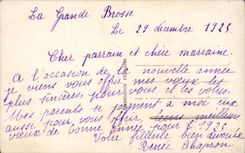 La Grande Brosse
Le 29 décembre 1925
Cher parrain et chère marraine
A l'occasion de la nouvelle année
je viens vous offrir mes vœux les
plus sincères, pour vous et les votres
Mes parents se joignent a moi eux
aussi pour vous offrir leurs meilleurs
vœux de bonne année pour 192
Votre filleule bien dévouée
Renée Chapron